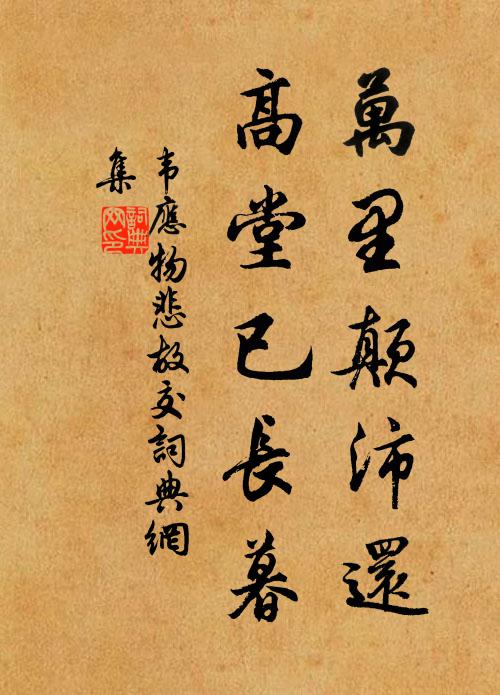 萬里顛沛還
高堂已長暮
韦應物悲故交詞典網
集
詞典
网印